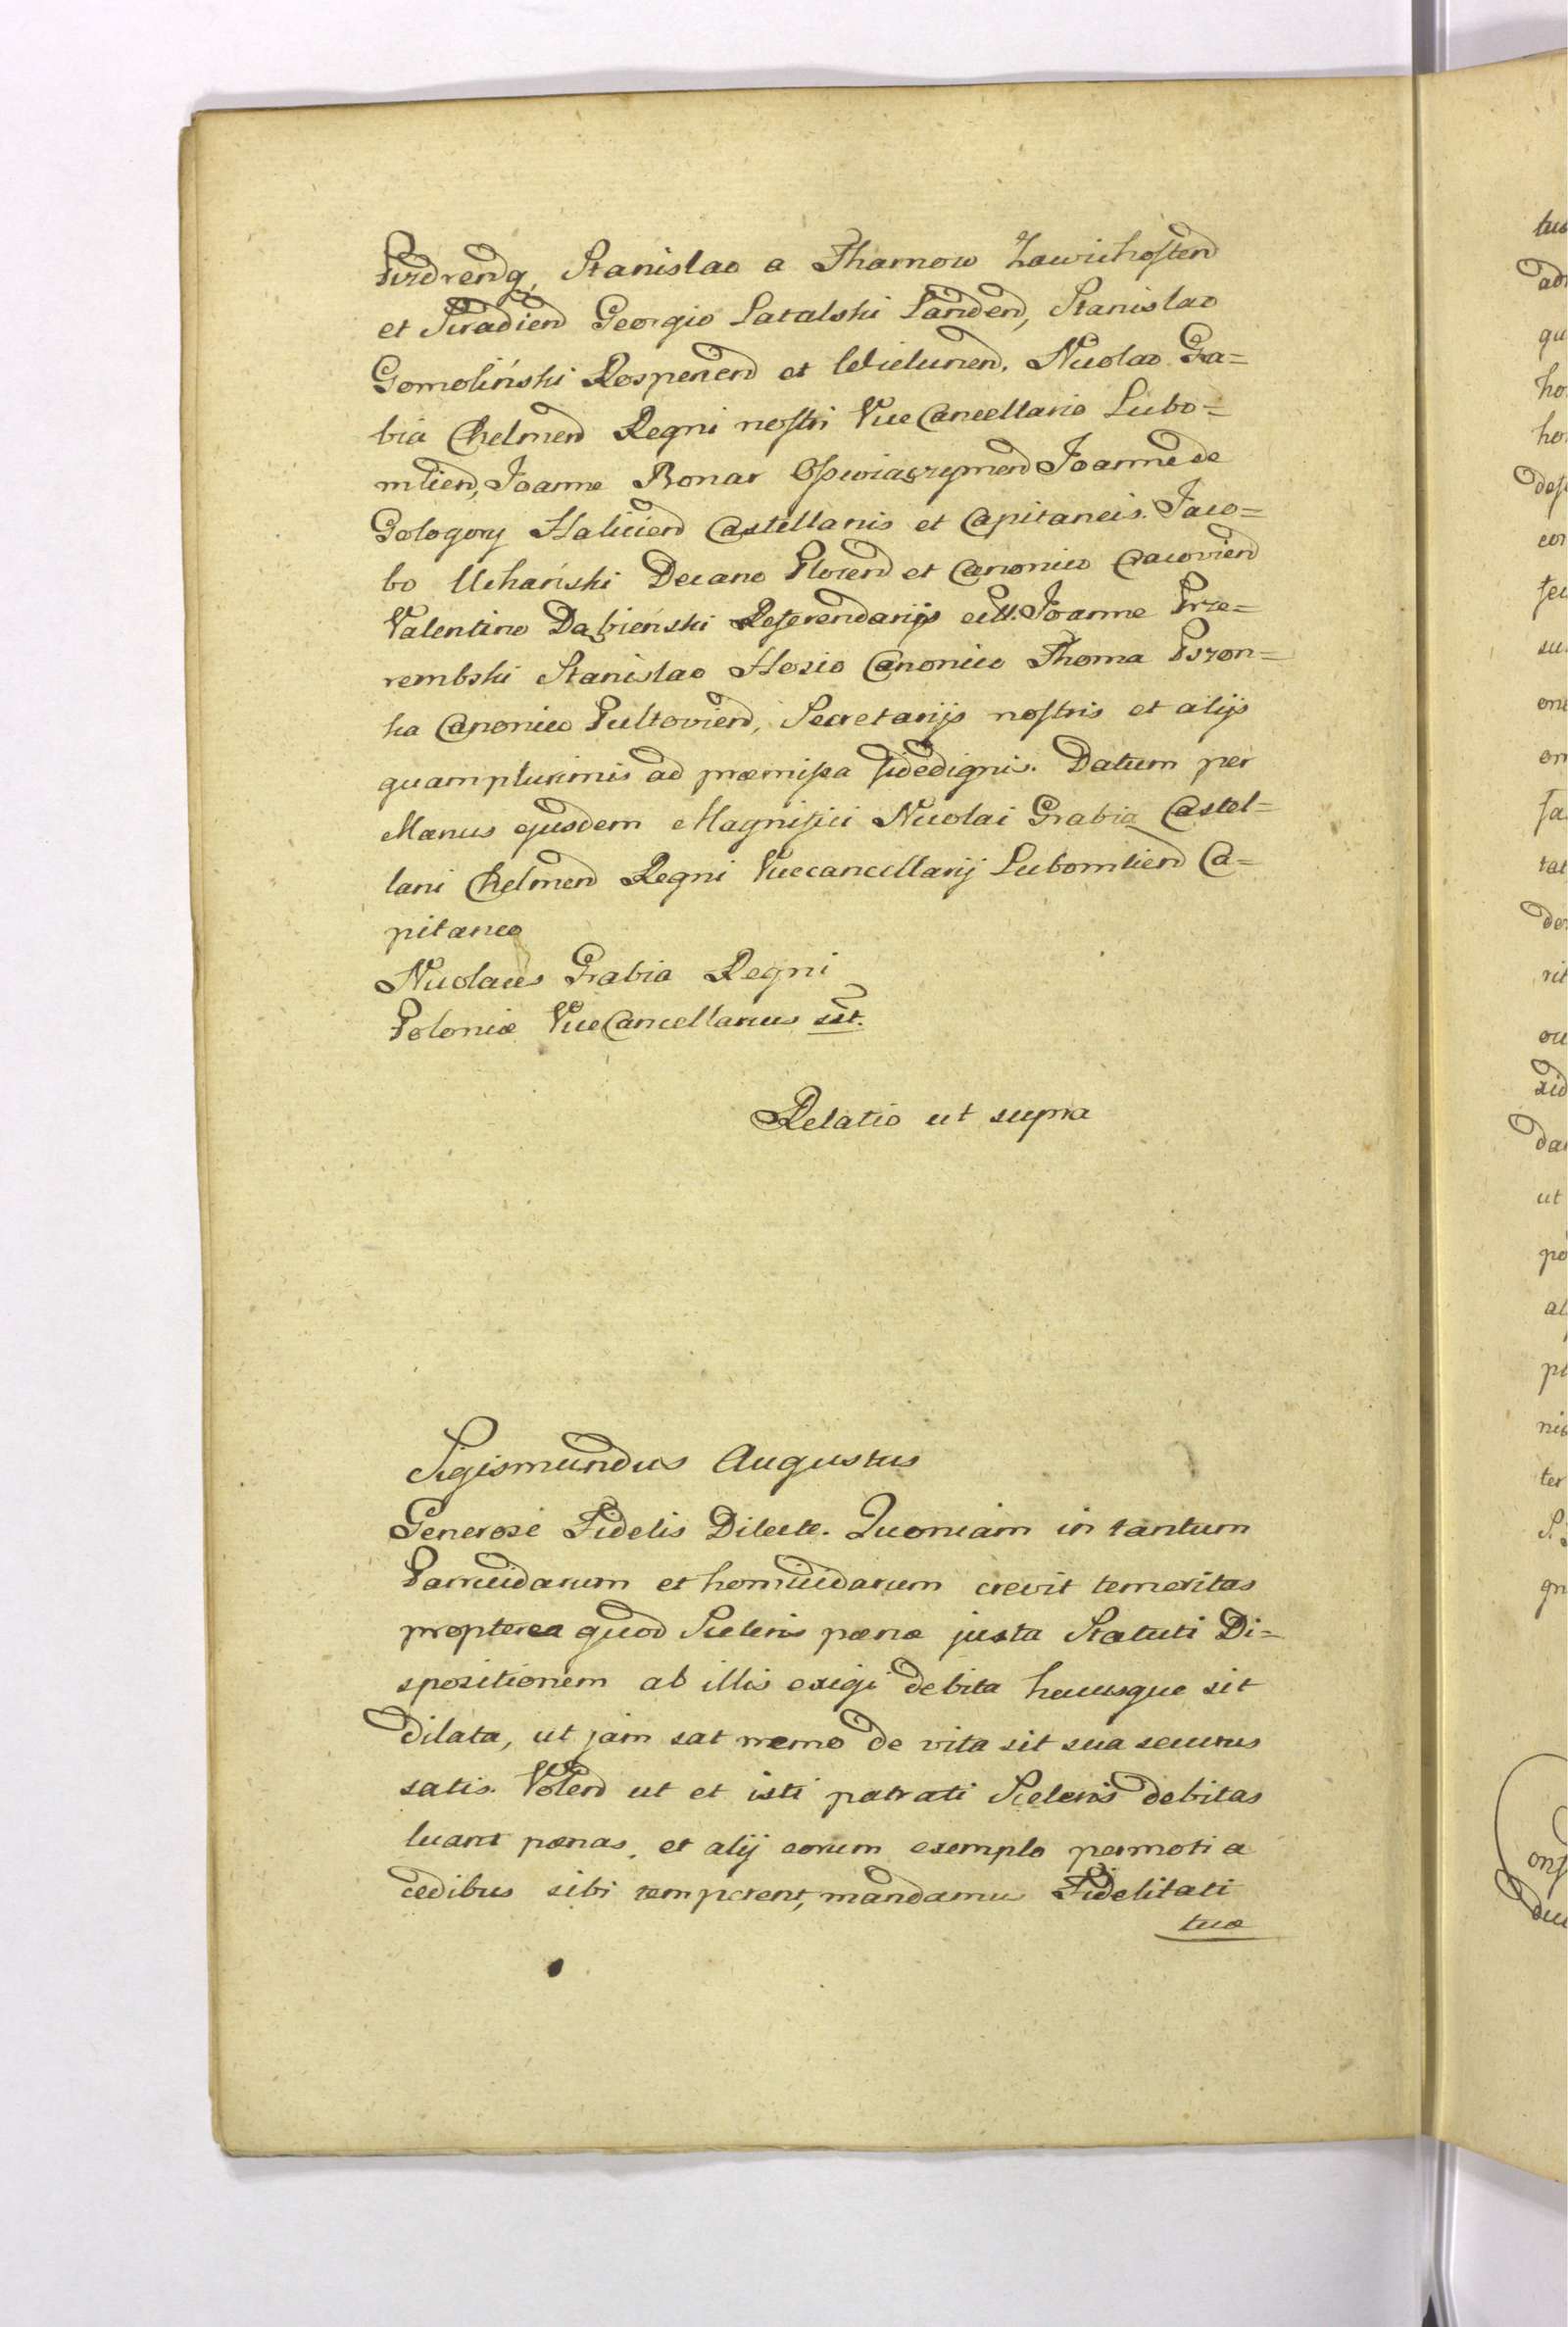 Pizdrend, Stanislao a Tharnow Zawichostend
et Siradiend Georgio Latalski Landend, Stanislao
Gomoliński Rospenend et Wielunend. Nicolao Gra=
bia Chelmend Regni nostri ViceCancellario Lubo=
mliend, Joanne Bonar Osswiaęzymend Joanne de
Gologory Haliciend Castellanis et Capitaneis. Jaco=
bo Uchański Decano Plocend et Canonico Cracoviend
Valentino Dąbieński Referendarijs cill. Joanne Prze=
rembski Stanislao Hosio Canonico Thoma Pszon=
ka Canonico Pultoviend, Secretarijs nostris et alijs
quamplurimis ad præmissa fidedignis. Datum per
Manus ejusdem Magnifici Nicolai Grabia Castel=
lani Chelmend Regni Vicecancellarij Lubomliend Ca=
pitaneo
Nicolaus Grabia Regni
Poloniæ ViceCancellarius sst.
Relatio ut supra
Sigismundus Augustus
Generose Fidelis Dilecte. Quoniam in tantum
Parricidarum et homicidarum crevit temeritas
propterea quod Sceleris pœnæ justa Statuti Di=
spositionem ab illis exigi debita hucusque sit
dilata, ut jam sat nemo de vita sit sua securus
satis. Volend ut et isti patrati Sceleris debitas
luant pœnas, et alij eorum exemplo permoti a
cedibus sibi temperent, mandamus Fidelitati
tuæ